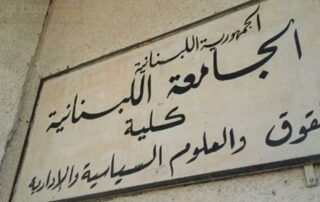 الجمهورية اللبنانية
الجامعة اللبنانية
كلية
والعلوم السياسية والإدارية